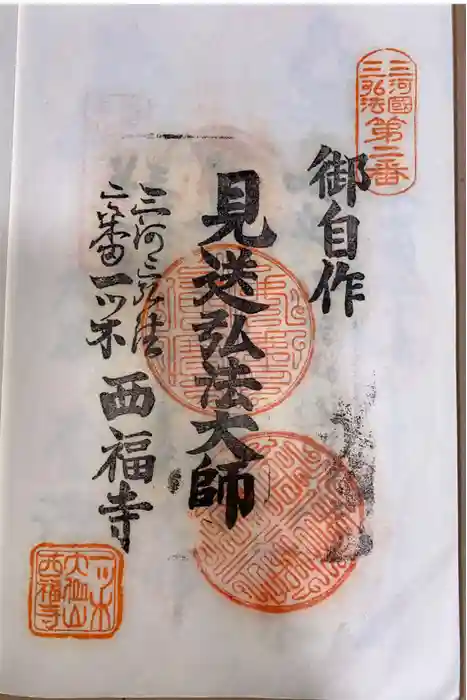 三河國
三弘法
第二番
御自作
見送弘法大師
三河三弘法
二番一ツ木
西福寺
一ツ木
大仙山
西福寺